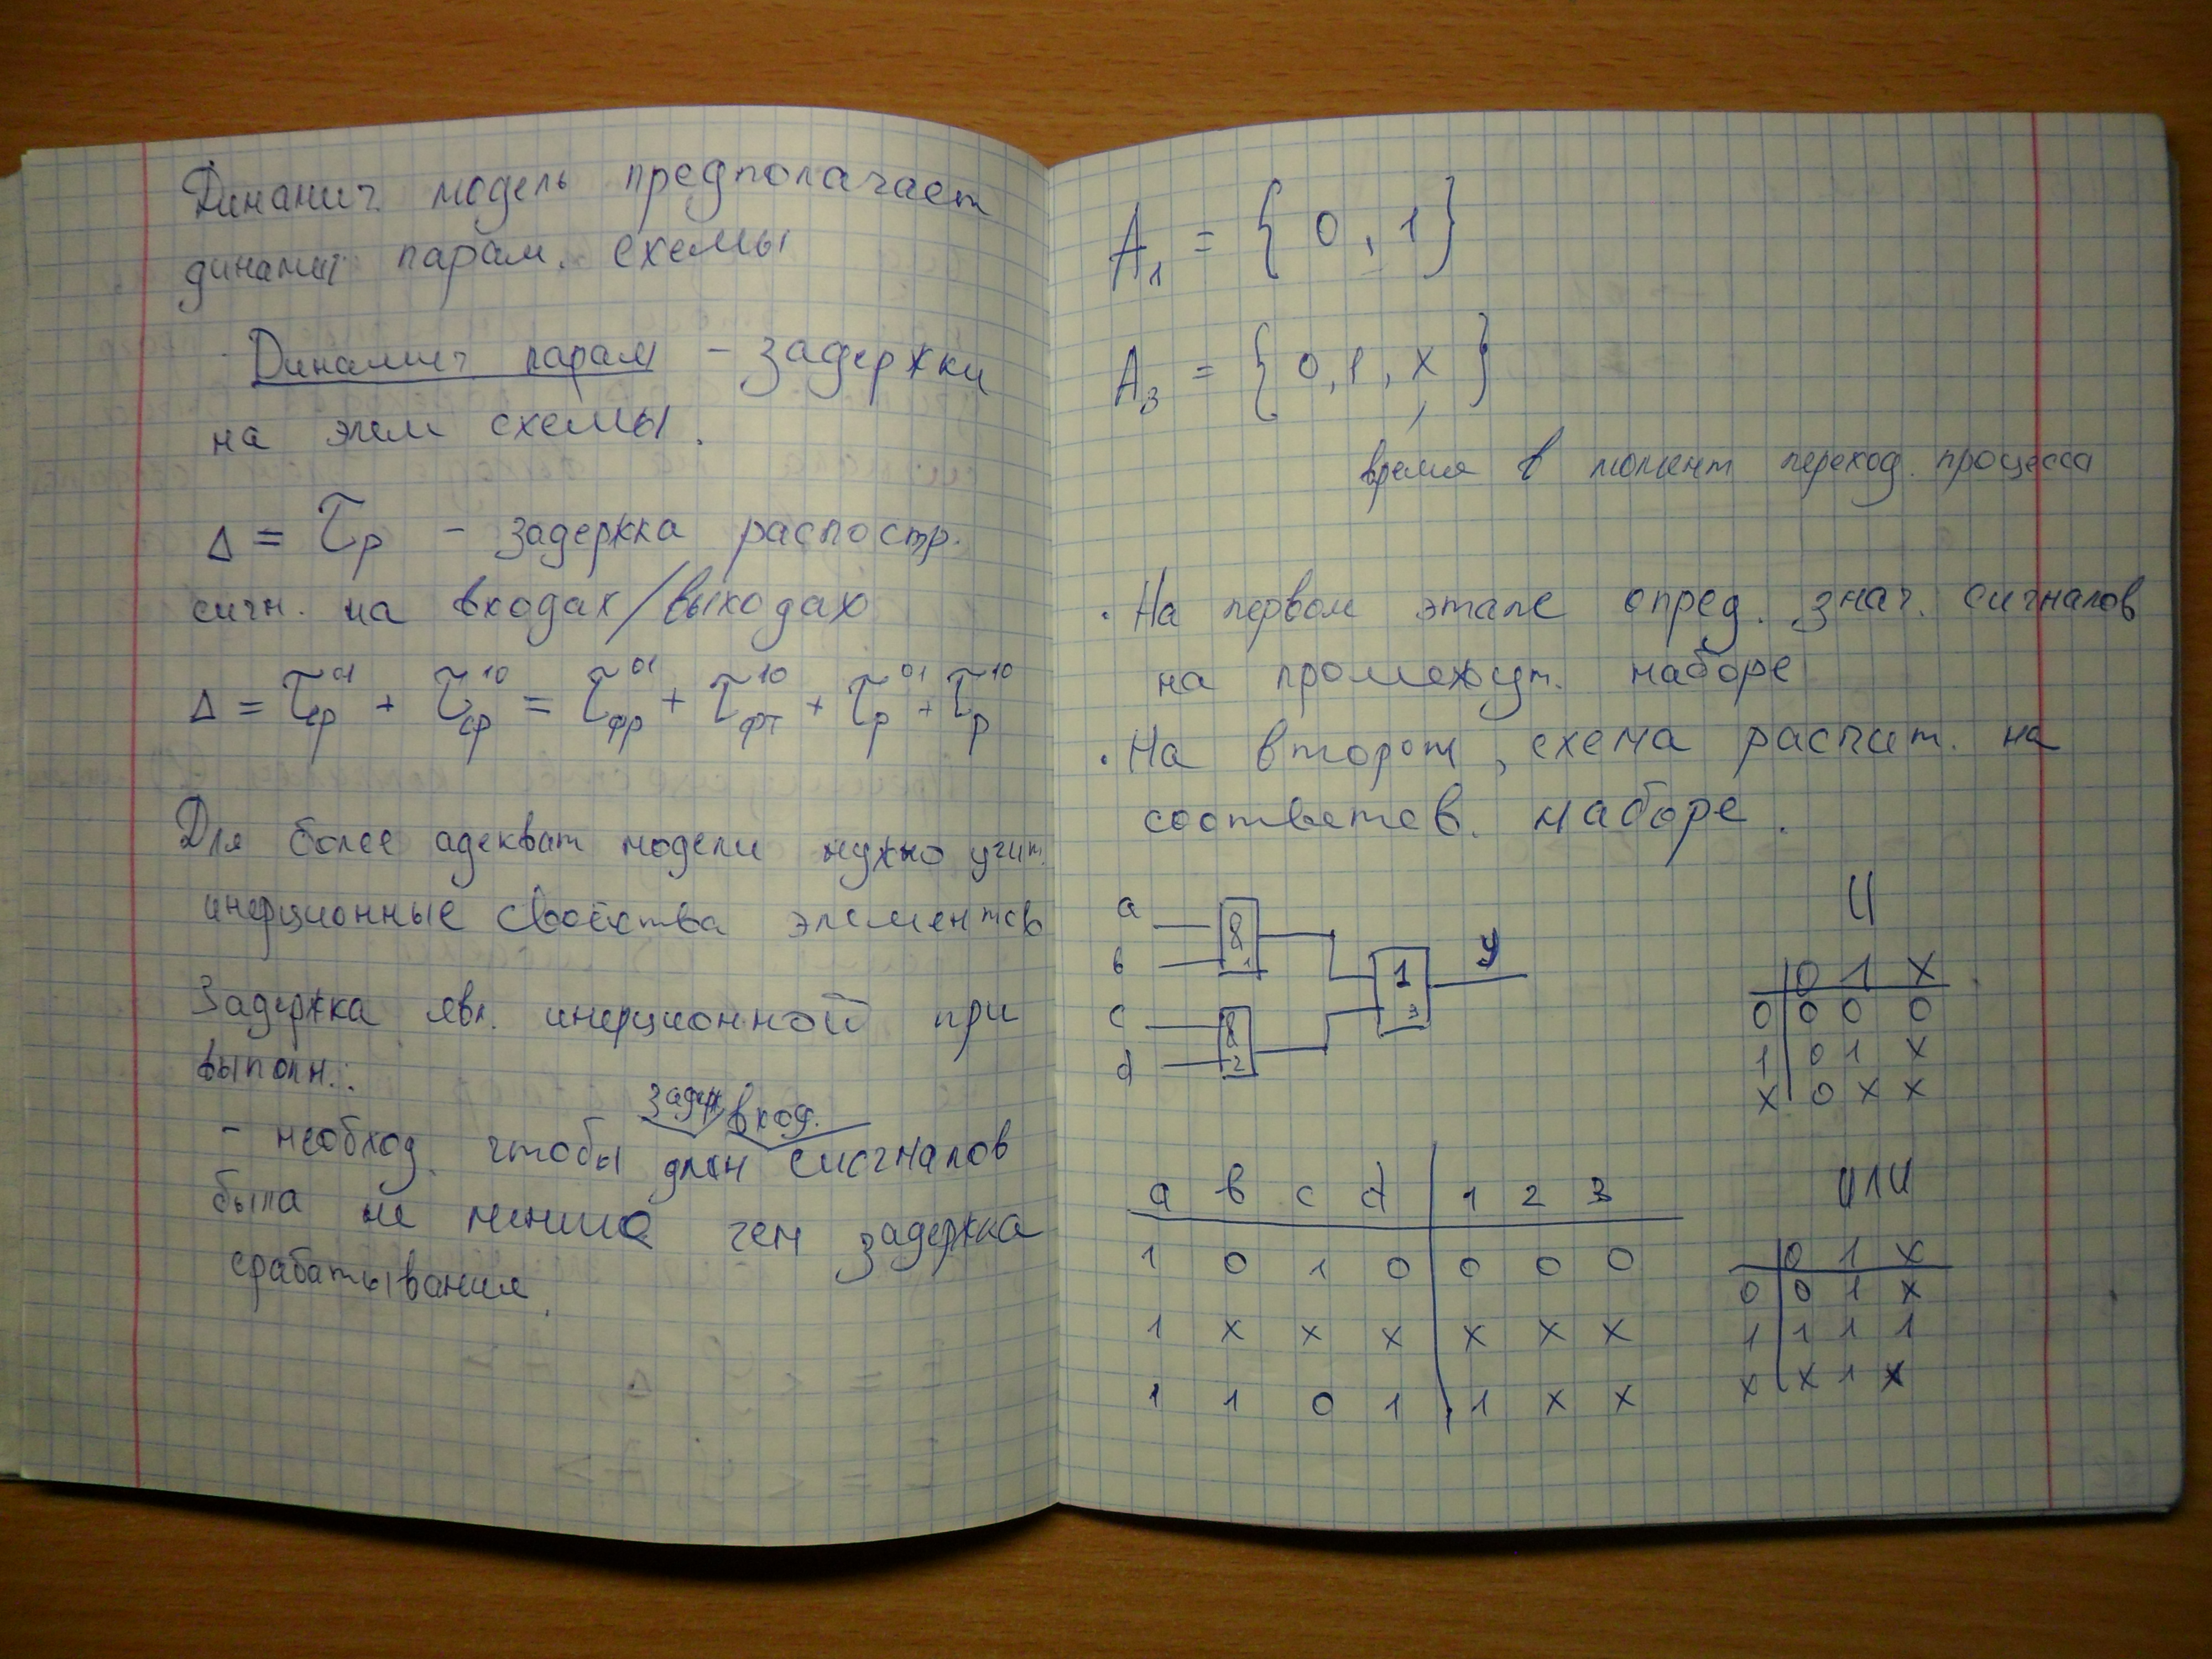 Динамич. модель предполагает
динамич парам. схемы
Динамич парам - задержки
на элем схемы.
Δ = τр - задержка распостр.
сигн. на входах/выходах
Δ = τср⁰¹ + τср¹⁰ = τфр⁰¹ + τфт¹⁰ + τр⁰¹ + τр¹⁰
Для более адекват модели нужно учит.
инерционные свойства элементов
Задержка явл. инерционной при
выполн.:
задерж вход.
- необход. чтобы длин сигналов
была не меньше чем задержка
срабатывания.
A₁ = { 0, 1 }
A₃ = { 0, 1, x }
время в момент переход. процесса
· На первом этапе опред. знач. сигналов
на промежут. наборе
· На втором, схема расчит. на
соответств. наборе.
a
в
&
1
c
d
&
2
1
3
y
И
0 1 x
0 0 0 0
1 0 1 x
x 0 x x
a в c d 1 2 3
1 0 1 0 0 0 0
1 x x x x x x
1 1 0 1 1 x x
ИЛИ
0 1 x
0 0 1 x
1 1 1 1
x x 1 x